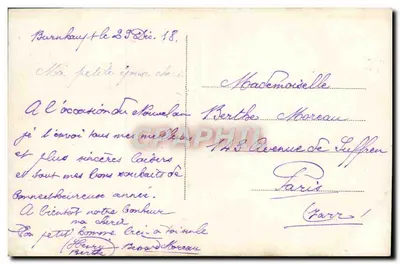 Burnhaupt le 29 Déc. 18.
Ma petite
A l'occasion du Nouvel an
je t'envoi tous mes meilleurs
et plus sincères baisers
et tout mes bons souhaits de
bonne et heureuse année.
A bientôt notre bonheur
ma chérie
Ton petit homme à toi seule
Henri
Berthe Moreau
Mademoiselle
Berthe Moreau
148 Avenue de Suffren
Paris